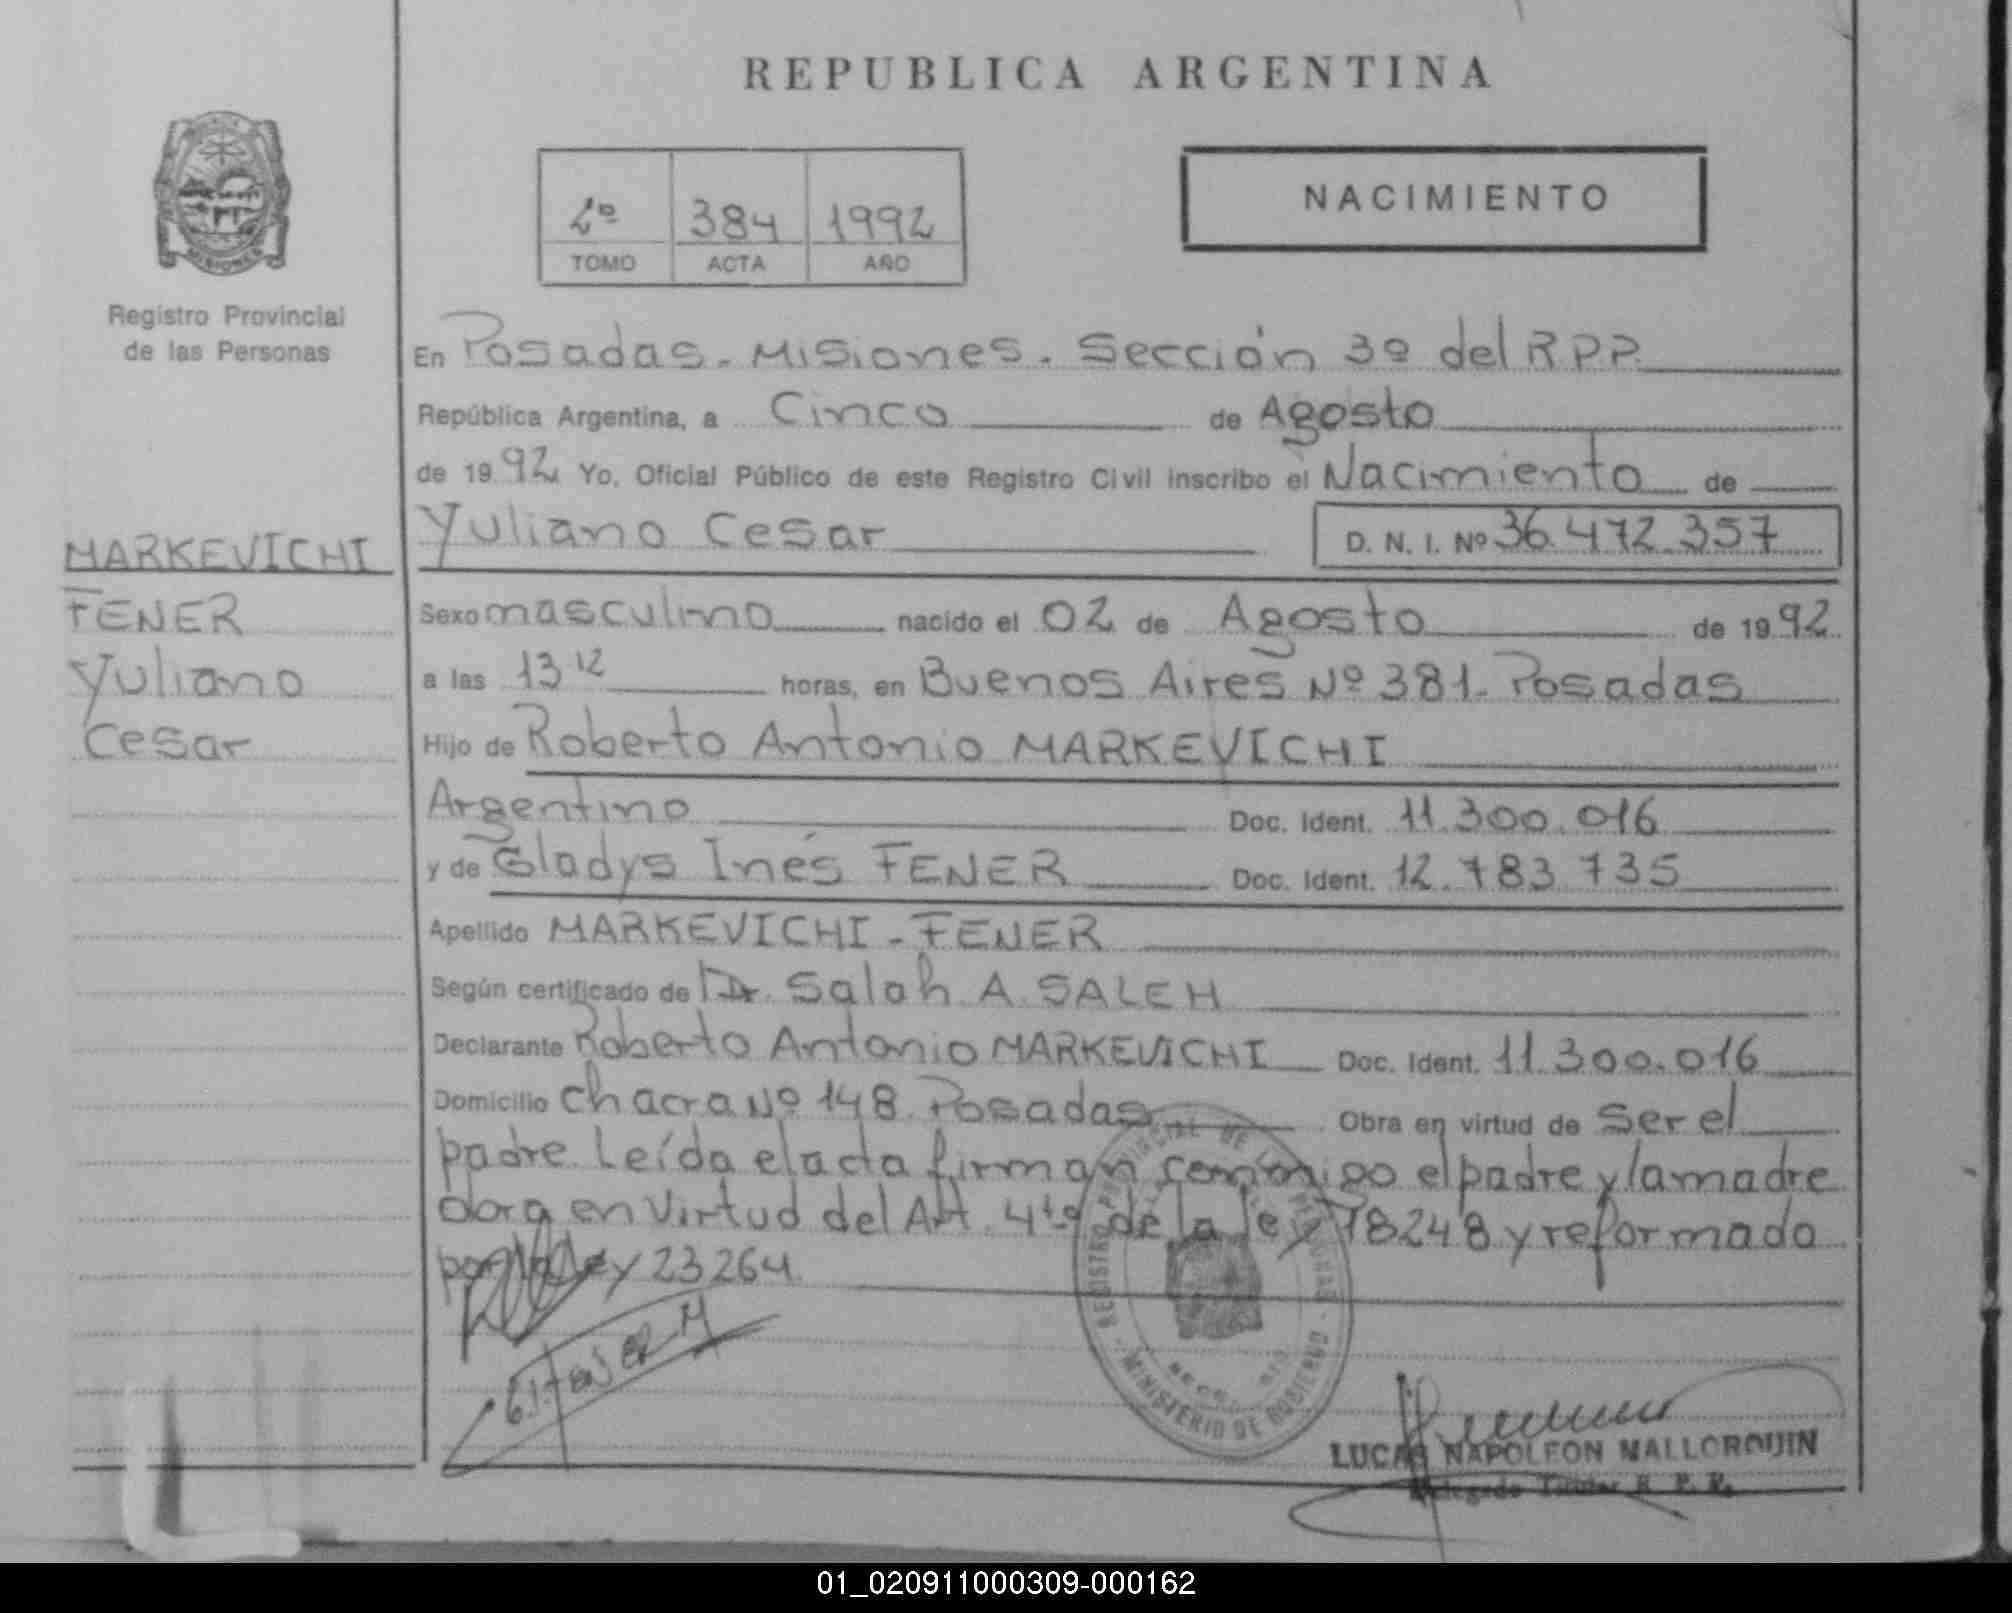 REPUBLICA ARGENTINA
2º 384 1992
TOMO ACTA AÑO
NACIMIENTO
MISIONES
Registro Provincial
de las Personas
En Posadas - Misiones. Sección 3º del R.P.P.
República Argentina, a Cinco de Agosto
de 1992 Yo, Oficial Público de este Registro Civil inscribo el Nacimiento de
Yuliano Cesar D. N. I. Nº 36.472.357
MARKEVICHI
FENER
Yuliano
Cesar
Sexo masculino nacido el 02 de Agosto de 1992
a las 13 12 horas, en Buenos Aires Nº 381. Posadas
Hijo de Roberto Antonio MARKEVICHI
Argentino Doc. Ident. 11.300.016
y de Gladys Inés FENER Doc. Ident. 12.783.735
Apellido MARKEVICHI - FENER
Según certificado de Dr. Salah A. SALEH
Declarante Roberto Antonio MARKEVICHI Doc. Ident. 11.300.016
Domicilio Chacra Nº 148. Posadas Obra en virtud de Ser el
padre. Leída el acta firman conmigo el padre y la madre
obra en Virtud del Art. 4to de la ley 18248 y reformado
por la ley 23264
G.I. FENER M
REGISTRO PROVINCIAL DE LAS PERSONAS
MINISTERIO DE GOBIERNO
LUCAS NAPOLEON MALLORQUIN
Delegado Titular R. P. P.
01_020911000309-000162